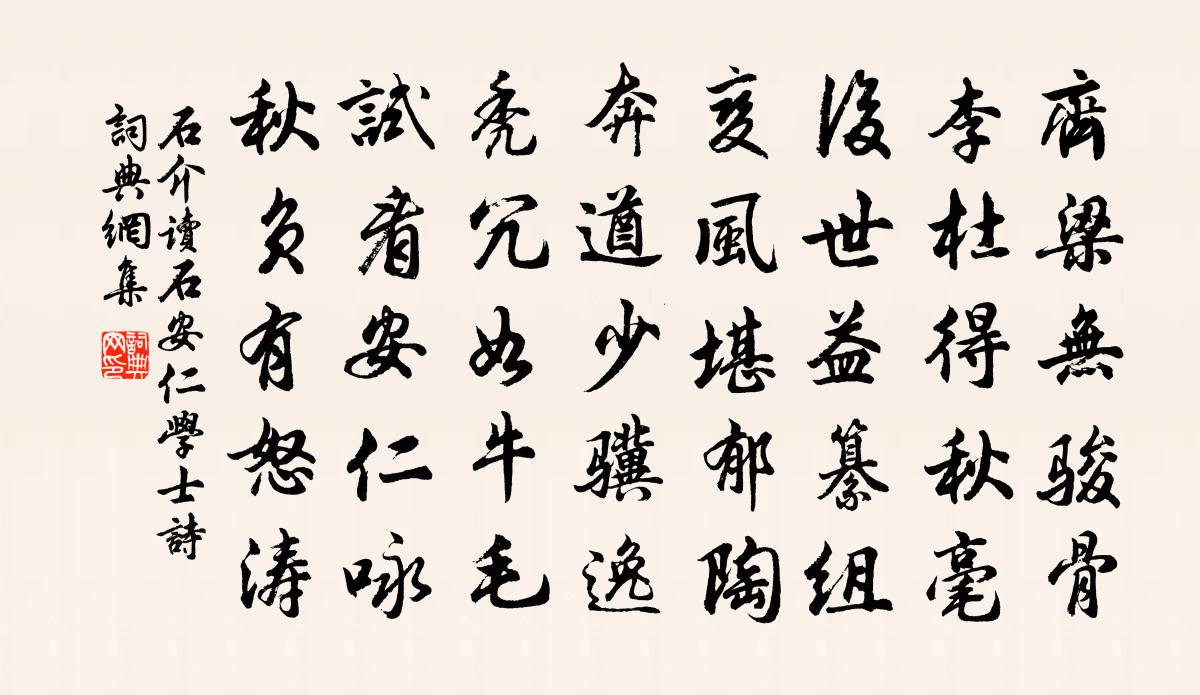 齊梁無骏骨
李杜得秋毫
後世益纂組
變風堪郁陶
奔道少骥逸
秃冗如牛毛
試看安仁咏
秋負有怒濤
石介讀石安仁學士詩
詞典網集
詞典
网印